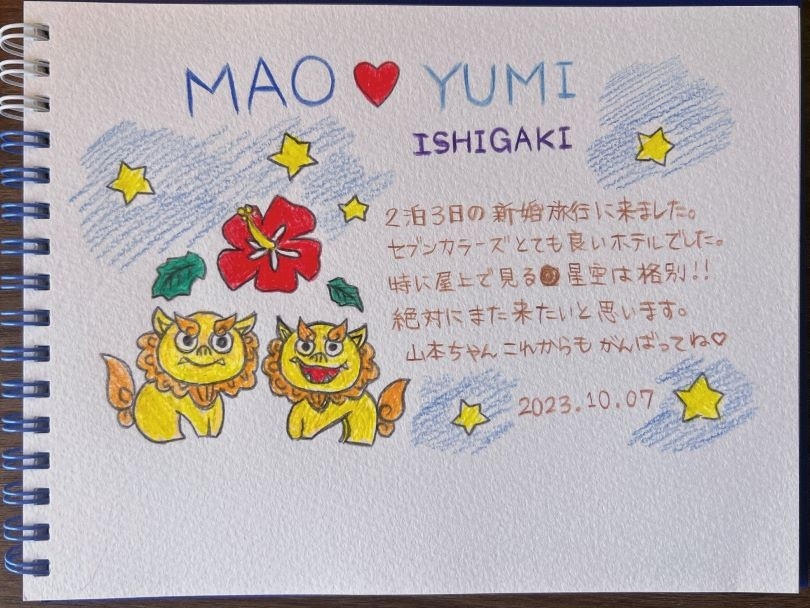 MAO ♥ YUMI
ISHIGAKI
2泊3日の新婚旅行に来ました。
セブンカラーズとても良いホテルでした。
特に屋上で見る星空は格別!!
絶対にまた来たいと思います。
山本ちゃんこれからもがんばってね♡
2023.10.07